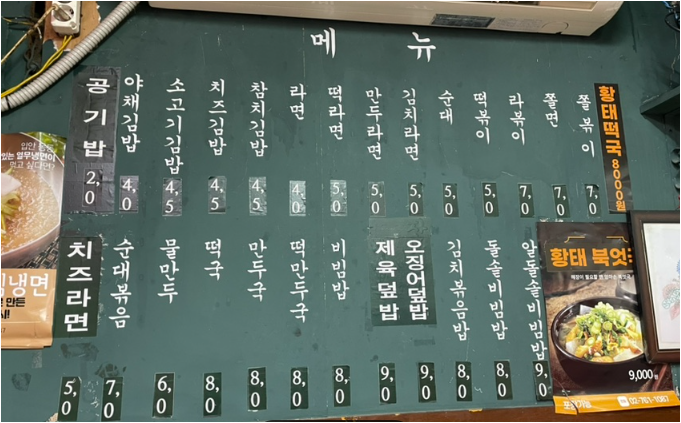 메뉴
공기밥 2,0
야채김밥 4,0
소고기김밥 4,5
치즈김밥 4,5
참치김밥 4,5
라면 4,0
떡라면 5,0
만두라면 5,0
김치라면 5,0
순대 5,0
떡볶이 5,0
라볶이 7,0
쫄면 7,0
쫄볶이 7,0
황태떡국 8000원
치즈라면 5,0
순대볶음 7,0
물만두 6,0
떡국 8,0
만두국 8,0
떡만두국 8,0
비빔밥 8,0
제육덮밥 9,0
오징어덮밥 9,0
김치볶음밥 8,0
돌솥비빔밥 8,0
알돌솥비빔밥 9,0
있는 열무냉면이
먹고 싶다면?
냉면
황태 북엇
9,000원
02-761-1087